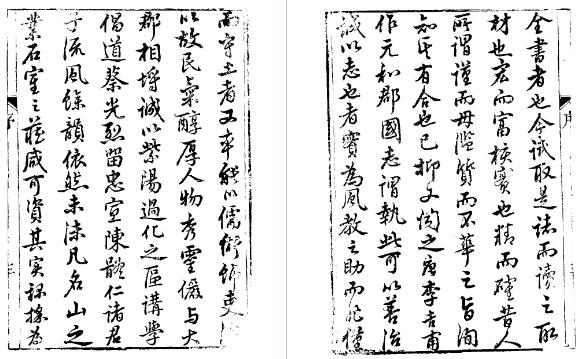 全書者也今試取是誌而讀之取
材也宏而富核實也精而確昔人
所謂謹而毋濫質而不華之旨洵
知其有合也已抑又聞之唐李吉甫
作元和郡國志謂執此可以善治
誠以志也者實為風教之助而非僅
序
而守土者又率能以儒術飾吏
以故民氣醇厚人物秀靈儼與大
郡相埒誠以紫陽過化之區講學
倡道蔡光烈留忠宣陳體仁諸君
子流風餘韻依然未沫凡名山之
業石室之藏咸可資其實為
序